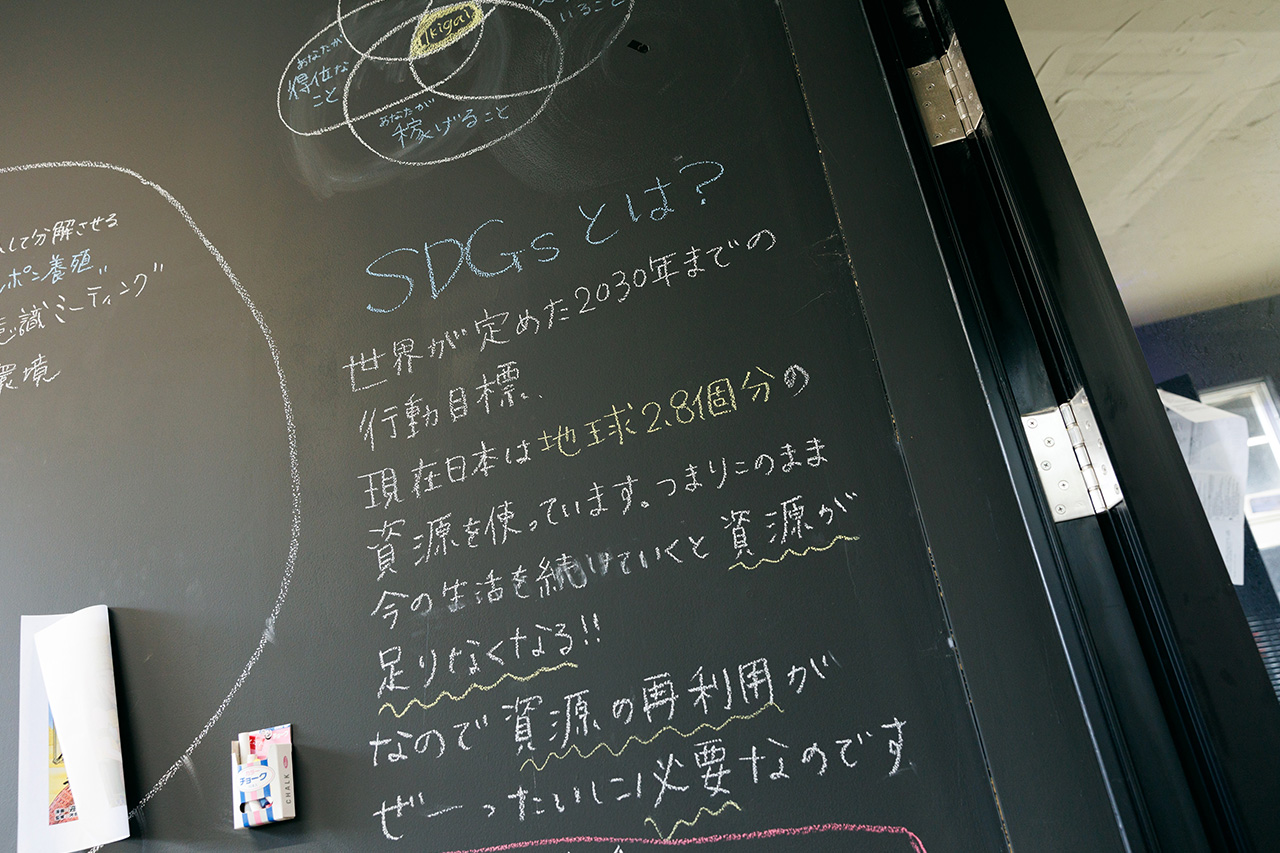 Ikigai
いること
あなたが
得位な
こと
あなたが
稼げること
して分解させる
ポン養殖"
意識ミーティング"
環境
SDGsとは?
世界が定めた2030年までの
行動目標、
現在日本は地球2.8個分の
資源を使っています。つまりこのまま
今の生活を続けていくと資源が
足りなくなる!!
なので資源の再利用が
ぜーったいに必要なのです
チョーク
CHALK